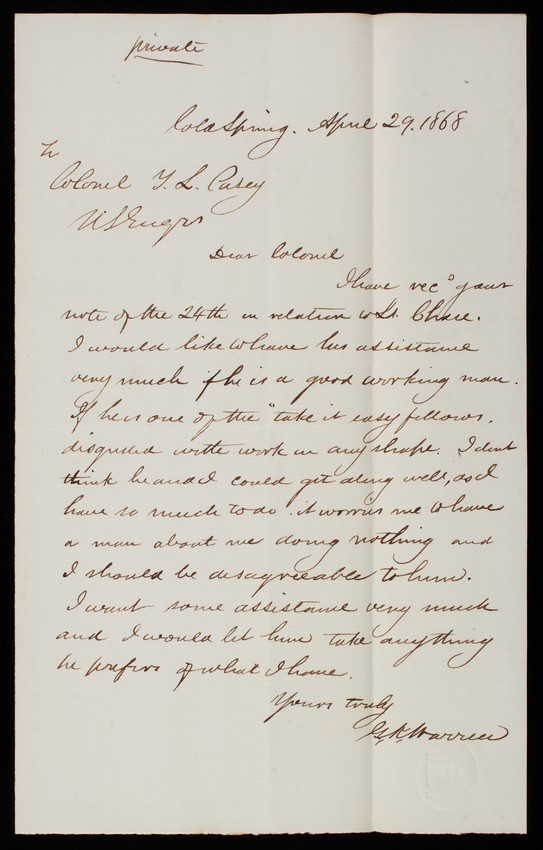 private
Cold Spring. April 29. 1868
To
Colonel T. L. Casey
US Engrs
Dear Colonel
I have recd your
note of the 24th in relation to Lt. Chase.
I would like to have his assistance
very much if he is a good working man.
If he is one of the "take it easy fellows.
disgusted with work in any shape. I dont
think he and I could get along well, as I
have so much to do it worries me to have
a man about me doing nothing and
I should be disagreeable to him.
I want some assistance very much
and I would let him take anything
he prefers of what I have.
Yours truly
G. K. Warren